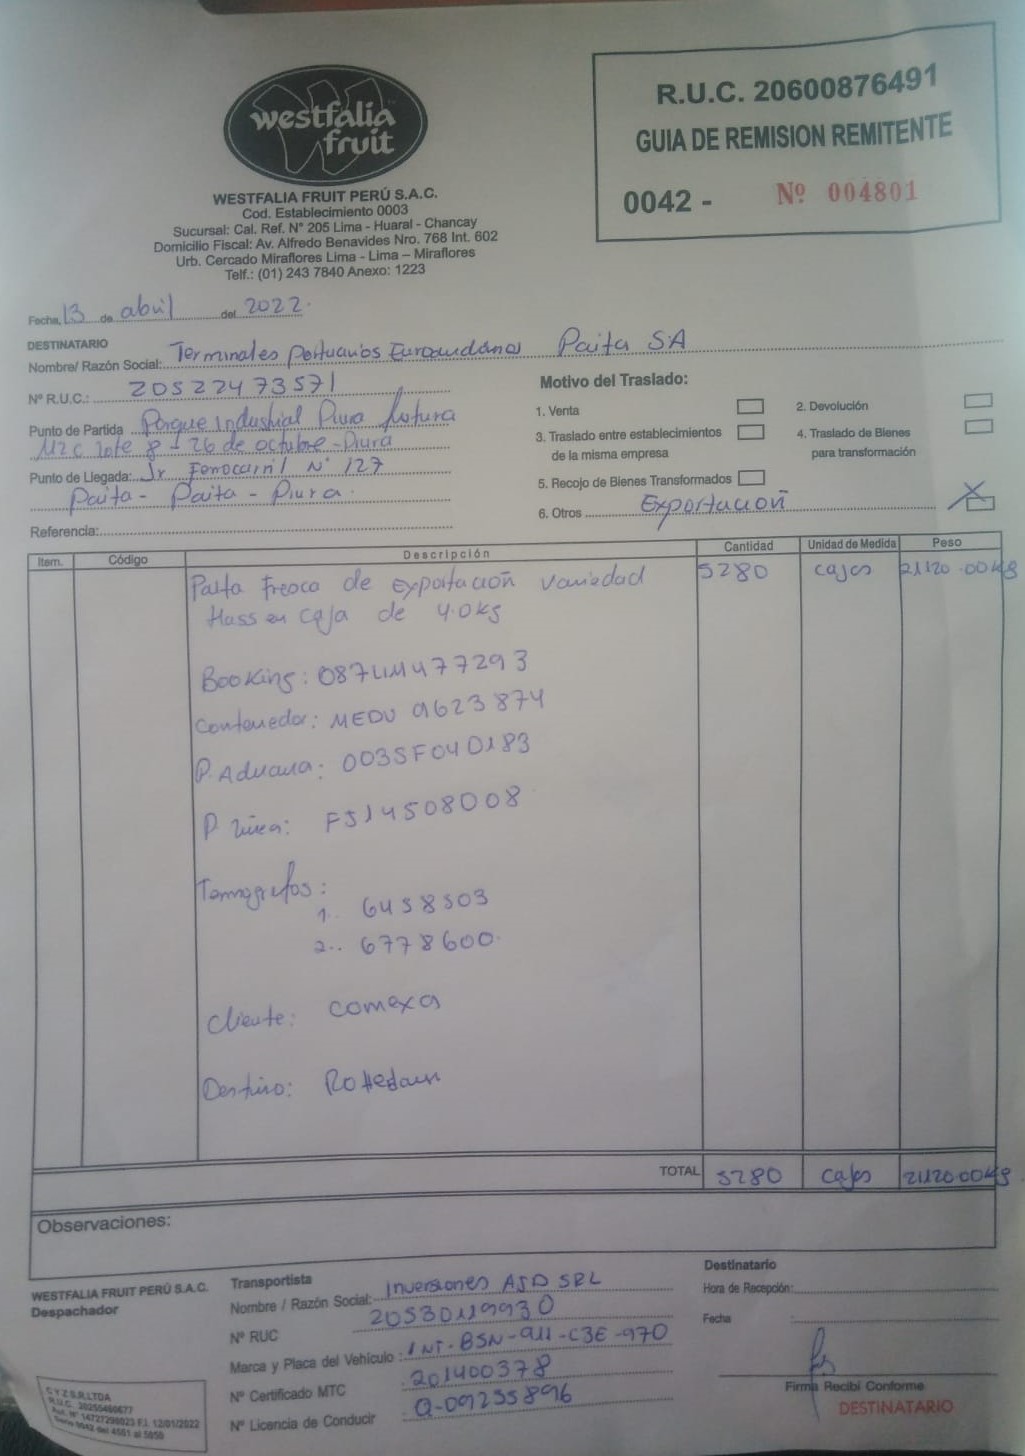 westfalia
fruit
WESTFALIA FRUIT PERÚ S.A.C.
Cod. Establecimiento 0003
Sucursal: Cal. Ref. N° 205 Lima - Huaral - Chancay
Domicilio Fiscal: Av. Alfredo Benavides Nro. 768 Int. 602
Urb. Cercado Miraflores Lima - Lima – Miraflores
Telf.: (01) 243 7840 Anexo: 1223
R.U.C. 20600876491
GUIA DE REMISION REMITENTE
0042 - Nº 004801
Fecha, 13 de abril del 2022.
DESTINATARIO
Nombre/ Razón Social: Terminales Portuarios Euroandinos Paita SA
Nº R.U.C.: 20522473571
Punto de Partida Parque Industrial Piura Futura
Mz C lote 8 - 26 de octubre - Piura
Punto de Llegada: Jr Ferrocarril N° 127
Paita - Paita - Piura.
Referencia:
Motivo del Traslado:
1. Venta
2. Devolución
3. Traslado entre establecimientos
de la misma empresa
4. Traslado de Bienes
para transformación
5. Recojo de Bienes Transformados
6. Otros Exportación X
Item. Código Descripción Cantidad Unidad de Medida Peso
Palta Fresca de exportación variedad 5280 cajas 21120.00kg
Hass en caja de 4.0kg
Booking: 087LIM477293
Contenedor: MEDU 9623874
P. Aduana: 003SF040183
P linea: FJ14508008
Termografos:
1.. 6458503
2.. 6778600.
Cliente: Comexa
Destino: Rotterdam
TOTAL 5280 cajas 21120.00kg
Observaciones:
WESTFALIA FRUIT PERÚ S.A.C.
Despachador
Transportista
Nombre / Razón Social: Inversiones AJD SRL
Nº RUC 20530119930
Marca y Placa del Vehículo : INT-BSN-911-C3E-970
Nº Certificado MTC 201400378
Nº Licencia de Conducir Q-09235896
Destinatario
Hora de Recepción:
Fecha
Firma Recibí Conforme
DESTINATARIO
C Y Z S.R.LTDA
R.U.C. 20255460677
Aut. Nº 14727298023 F.I. 12/01/2022
Serie 0042 del 4551 al 5050